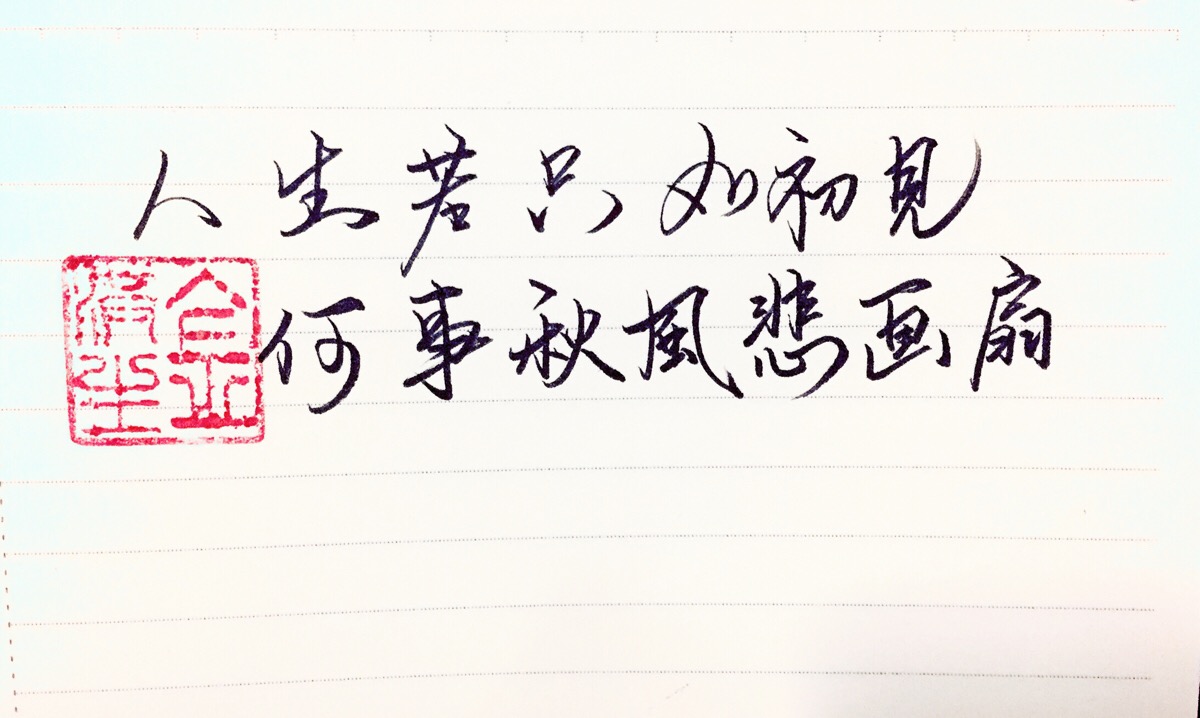 人生若只如初見
何事秋風悲画扇